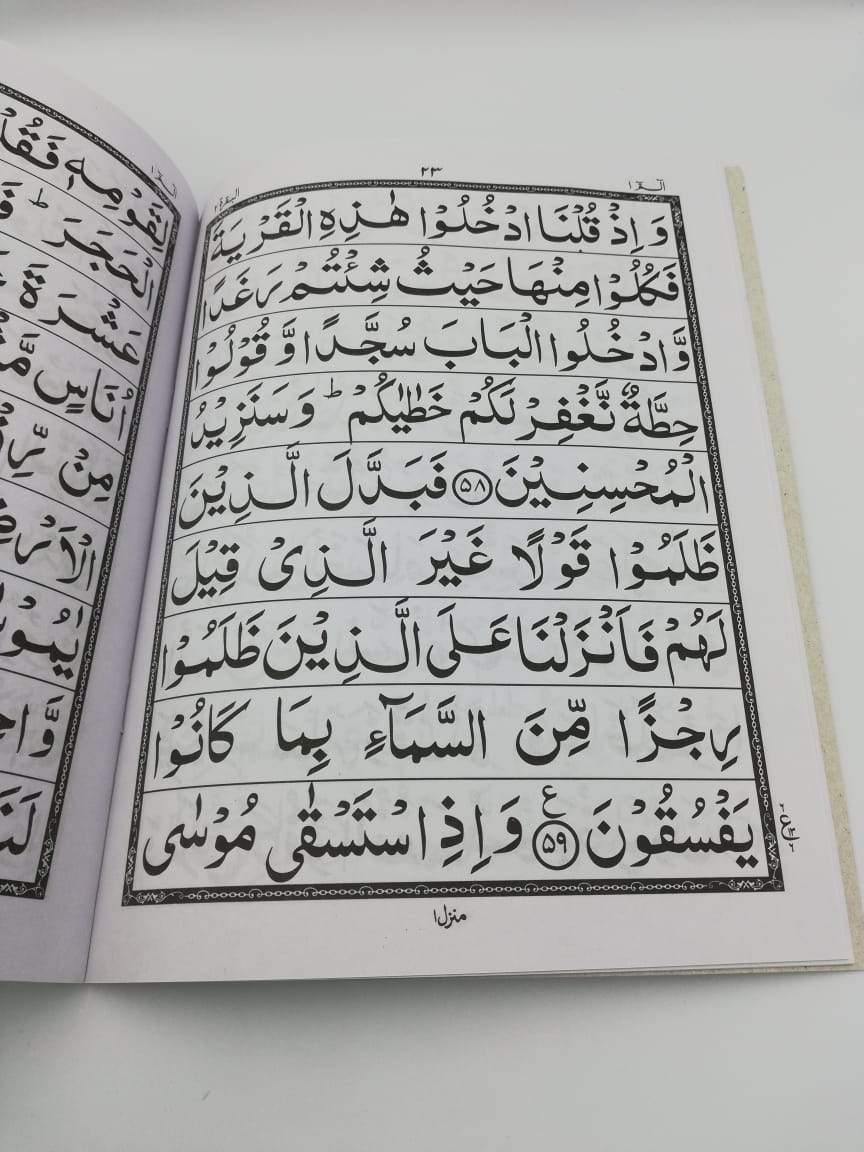 ۲۳
الٓمّٓ ۱
البقرة ۲
وَ اِذْ قُلْنَا ادْخُلُوْا هٰذِهِ الْقَرْیَةَ
فَكُلُوْا مِنْهَا حَیْثُ شِئْتُمْ رَغَدًا
وَّ ادْخُلُوا الْبَابَ سُجَّدًا وَّ قُوْلُوْا
حِطَّةٌ نَّغْفِرْ لَكُمْ خَطٰیٰكُمْ ؕ وَ سَنَزِیْدُ
الْمُحْسِنِیْنَ ۵۸ فَبَدَّلَ الَّذِیْنَ
ظَلَمُوْا قَوْلًا غَیْرَ الَّذِیْ قِیْلَ
لَهُمْ فَاَنْزَلْنَا عَلَى الَّذِیْنَ ظَلَمُوْا
رِجْزًا مِّنَ السَّمَآءِ بِمَا كَانُوْا
یَفْسُقُوْنَ ۵۹ ع وَ اِذِ اسْتَسْقٰى مُوْسٰى
منزل ۱
الٓمّٓ ۱
لِقَوْمِهٖ
الْحَجَرَ ؕ
عَشْرَةَ
اُنَاسٍ
مِنْ